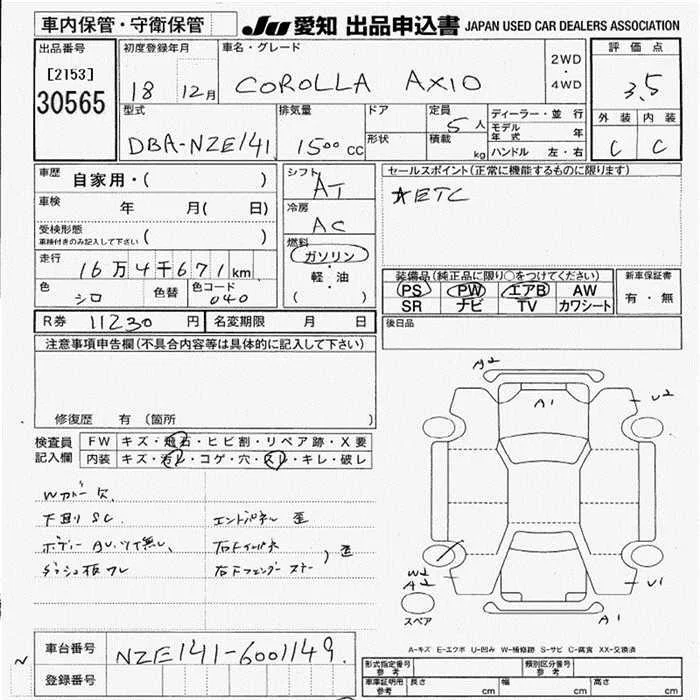 車内保管・守衛保管
JU 愛知 出品申込書 JAPAN USED CAR DEALERS ASSOCIATION
出品番号
[2153]
30565
初度登録年月
18 12月
車名・グレード
COROLLA AXIO
2WD
・
4WD
評価点
3.5
外装 内装
C C
型式
DBA-NZE141
排気量
1500 CC
ドア
形状
定員
5人
積載
kg
ディーラー・並行
モデル年式 年
ハンドル 左・右
車歴
自家用・( )
車検
年 月( 日)
受検形態
車検付きのみ記入して下さい ( )
走行
16万4千671km
色
シロ
色替
色コード
040
シフト
AT
冷房
AC
燃料
ガソリン
軽・油
( )
セールスポイント(正常に機能するものに限ります)
★ETC
装備品(純正品に限り○をつけてください)
PS PW エアB AW
SR ナビ TV カワシート
新車保証書
有・無
R券 11230 円
名変期限 月 日
後日品
注意事項申告欄(不具合内容等は具体的に記入して下さい)
修復歴 有 (箇所 )
検査員
記入欄
FW キズ・飛石・ヒビ割・リペア跡・X要
内装 キズ・汚レ・コゲ・穴・スレ・キレ・破レ
Wカバー欠
下回りSC
エンドパネル 歪
ボディー AU、ツヤ無し
ダッシュ板ワレ
A2
A1
U2
W2
A2
U1
A1
スペア
A-キズ E-エクボ U-凹み W-補修跡 S-サビ C-腐食 XX-交換済
車台番号
NZE141-6001149
登録番号
形式指定番号
参考
類別区分番号
参考
車庫証明用
参考
長さ cm
幅 cm
高さ cm